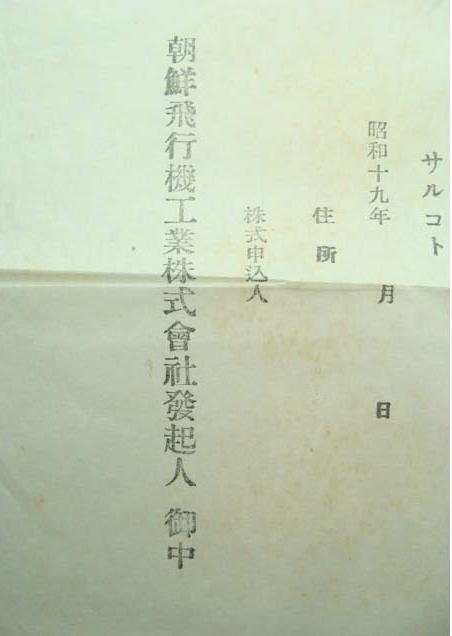 サルコト
昭和十九年 月 日
住所
株式申込人
朝鮮飛行機工業株式會社發起人 御中